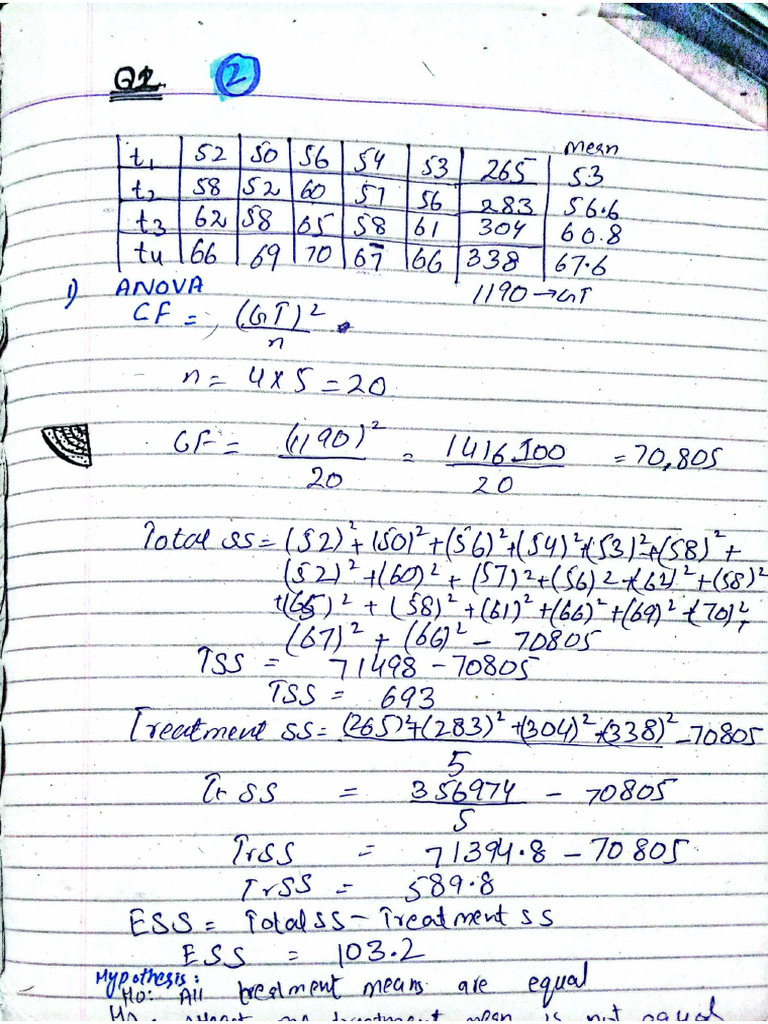 Q2. 2
mean
t1 52 50 56 54 53 265 53
t2 58 52 60 57 56 283 56.6
t3 62 58 65 58 61 304 60.8
t4 66 69 70 67 66 338 67.6
1190 → GT
1) ANOVA
CF = (GT)²/n
n = 4 x 5 = 20
CF = (1190)²/20 = 1416100/20 = 70,805
Total SS = (52)² + (50)² + (56)² + (54)² + (53)² + (58)² +
(52)² + (60)² + (57)² + (56)² + (62)² + (58)²
+ (65)² + (58)² + (61)² + (66)² + (69)² + (70)² +
(67)² + (66)² - 70805
TSS = 71498 - 70805
TSS = 693
Treatment SS = (265)² + (283)² + (304)² + (338)²/5 - 70805
Tr SS = 356974/5 - 70805
TrSS = 71394.8 - 70805
TrSS = 589.8
ESS = Total SS - Treatment SS
ESS = 103.2
Hypothesis:
H0: All treatment means are equal
one treatment mean is not equal